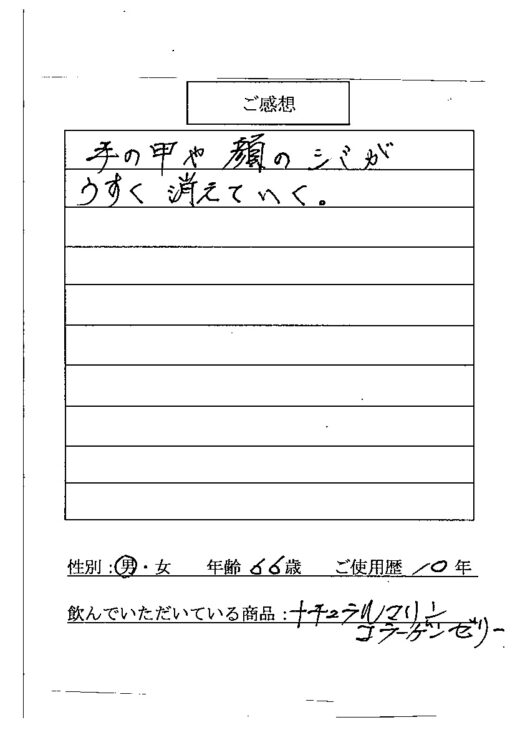 ご感想
手の甲や顔のシミが
うすく消えていく。
性別：男・女　年齢 66歳　ご使用歴 10年
飲んでいただいている商品：ナチュラルマリン
コラーゲンゼリー